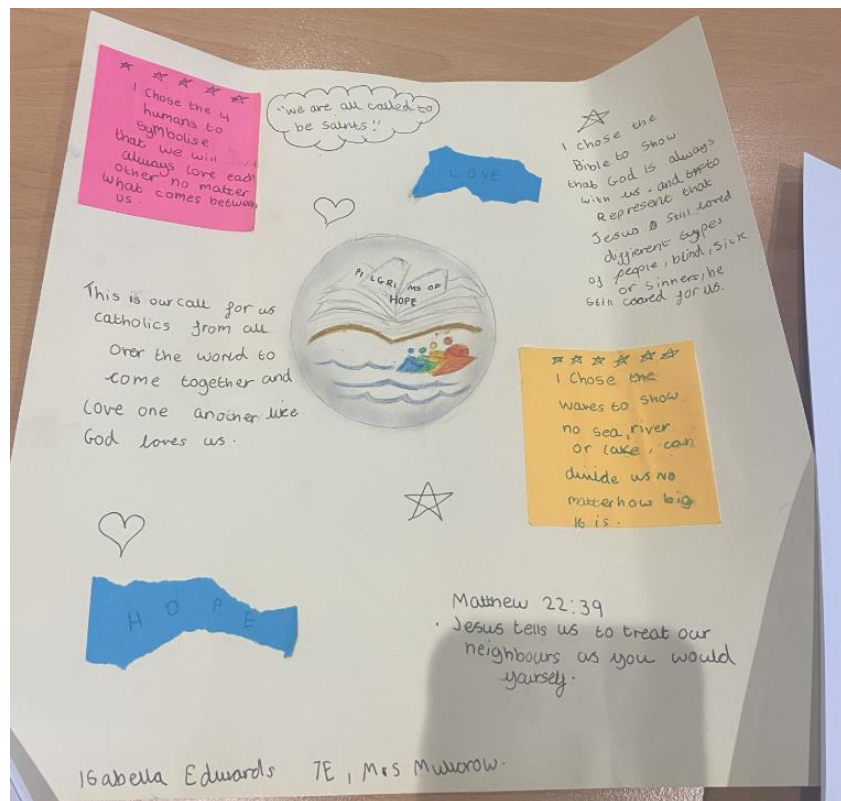 ☆ ☆ ☆ ☆ ☆
I chose the 4
humans to
symbolise
that we will
always love each
other no matter
what comes between
us.
"we are all called to
be saints!!
LOVE
☆
I chose the
Bible to show
that God is always
with us. and to
Represent that
Jesus still loved
different types
of people, blind, sick
or sinners, he
still coared for us.
PILGRIMS OF
HOPE
This is our call for us
catholics from all
over the world to
come together and
love one another like
God loves us.
☆ ☆ ☆ ☆ ☆ ☆
I chose the
waves to show
no sea, river
or lake, can
divide us no
matter how big
it is.
HOPE
Matthew 22:39
· Jesus tells us to treat our
neighbours as you would
yourself.
Isabella Edwards 7E, Mrs